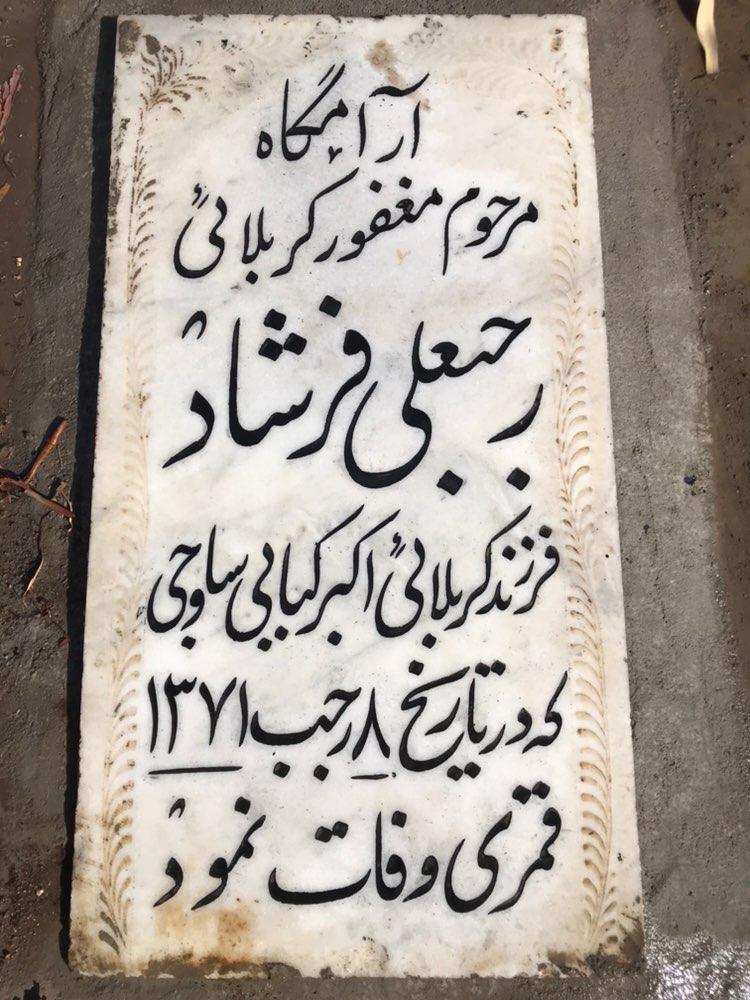 آرامگاه
مرحوم مغفور کربلائی
رجبعلی فرشاد
فرزند کربلائی اکبر کبابی ساوجی
که در تاریخ ۸ رجب ۱۳۷۱
قمری وفات نمود